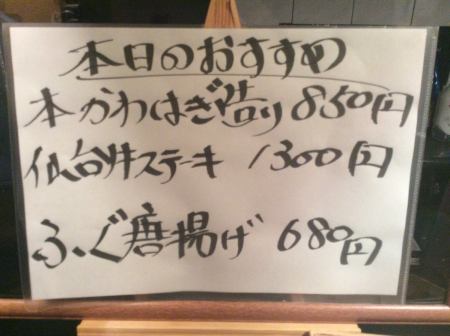 本日のおすすめ
本かわはぎ造り 850円
仙台牛ステーキ 1300円
ふぐ唐揚げ 680円